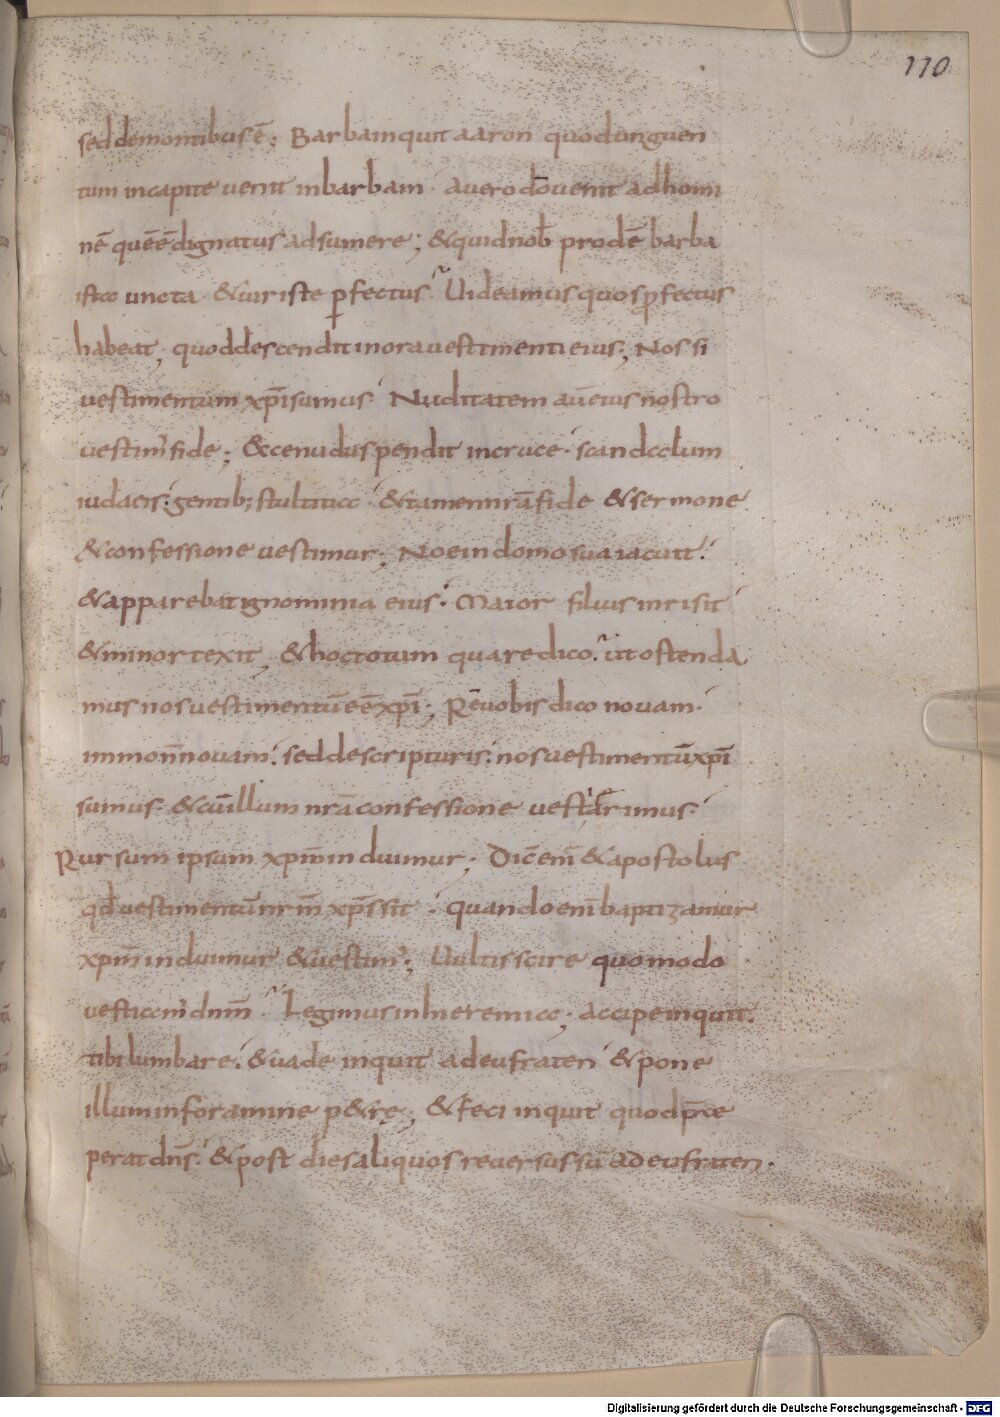 110
sed demontibus ē; Barbam inquit aaron quod unguen
tum incapite venit inbarbam · avero dō venit ad homi
nē quē ē dignatus adsumere; & quid nob̄ prodē barba
ista uncta · & vir iste ꝑfectus Uideamus quos ꝓfectus
habeat; quod descendit inora vestimenti eius; Nos si
vestimentum xp̄i sumus · Nuditatem aū eius nostro
vestim̄ fide; Ecce nudus pendit incruce · scandalum
iudaeis: gentib; stultitia · & tamen nr̄a fide & sermone
& confessione vestitur; Noe in domo sua iacuit:
& apparebat ignominia eius · Maior filius inrisit
& minor texit; & hoc totum quare dico ut ostenda
mus nos vestimentū eē xp̄i; Rē vobis dico novam ·
immo n̄ novam: sed descripturis: nos vestimentū xp̄i
sumus · & cū illum nr̄a confessione vestiarimus ·
Rursum ipsum xp̄m induimur; Dic̄ enī & apostolus
qd̄ vestimentū nr̄m xp̄s sit · quando enī baptizamur
xp̄m induimur & vestim̄; Uultis scire quomodo
vestiam̄ dnm̄ · Legimus in hieremia; accipe inquit:
tibi lumbare: & vade inquit ad eufraten & pone
illum inforamine p&rę; & feci inquit quod p̄ce
perat dn̄s: & post dies aliquos reversus sū ad eufraten ·
Digitalisierung gefördert durch die Deutsche Forschungsgemeinschaft - DFG